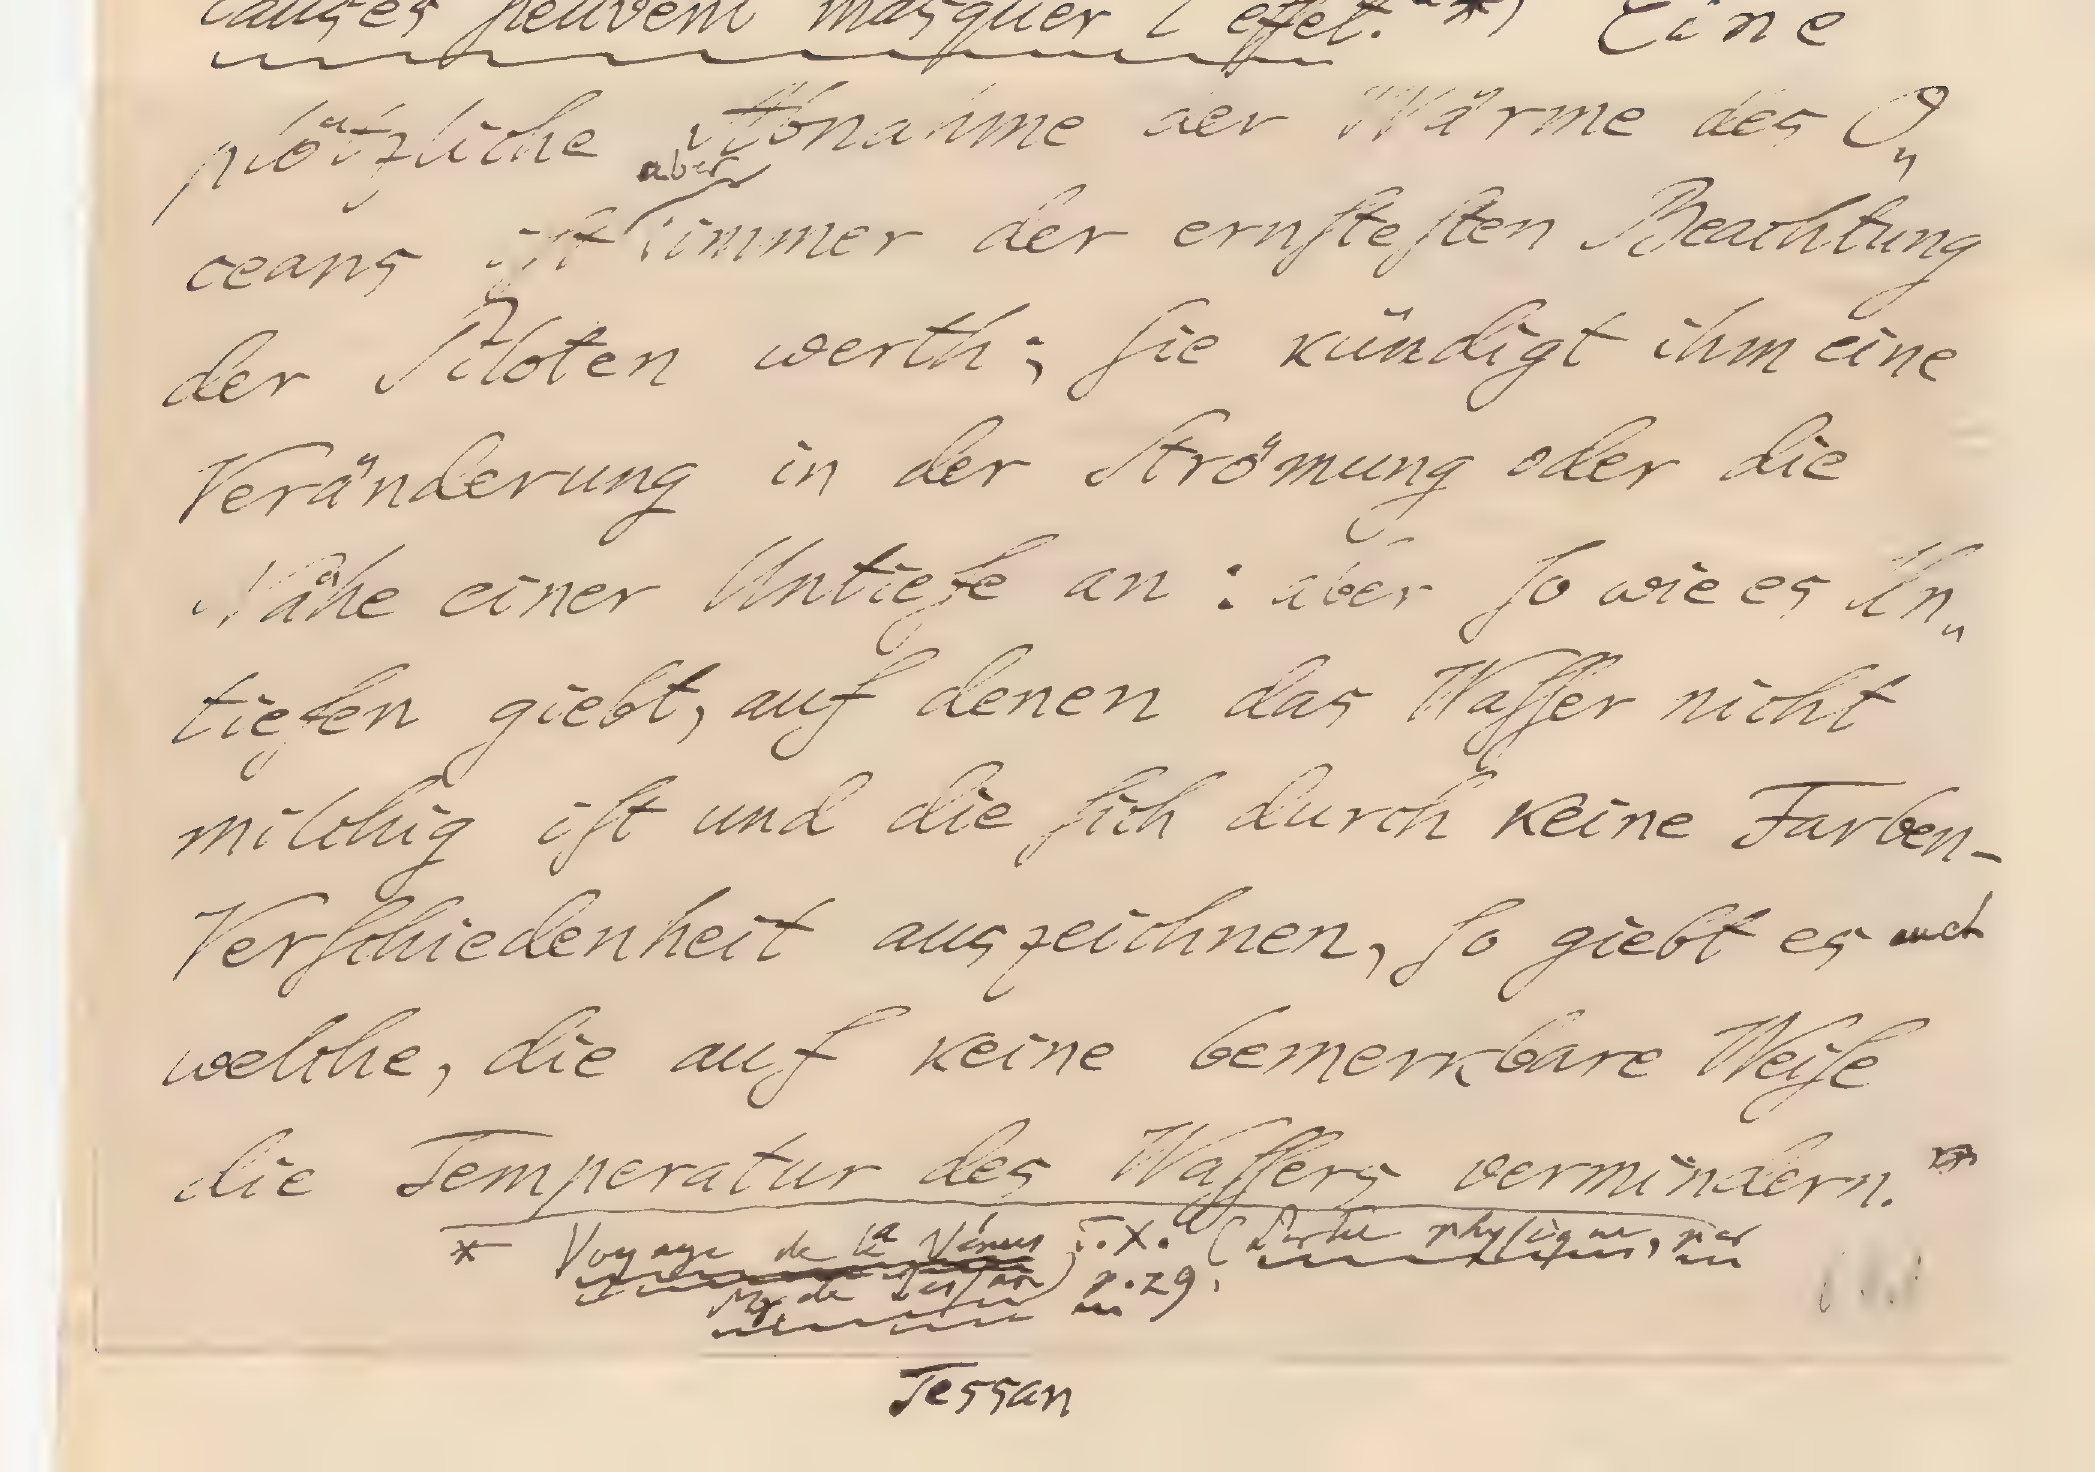 causes peuvent masquer l'effet." *) Eine
plötzliche Abnahme der Wärme des O„
aber
ceans ist immer der ernstesten Beachtung
der Piloten werth; sie kündigt ihm eine
Veränderung in der Strömung oder die
Nähe einer Untiefe an: aber so wie es Un„
tiefen giebt, auf denen das Wasser nicht
milchig ist und die sich durch keine Farben-
Verschiedenheit auszeichnen, so giebt es auch
welche, die auf keine bemerkbare Weise
die Temperatur des Wassers vermindern.**
* Voyage de la Vénus T. X. (Partie physique, par
Mr. de Tessan) p. 29.
Tessan